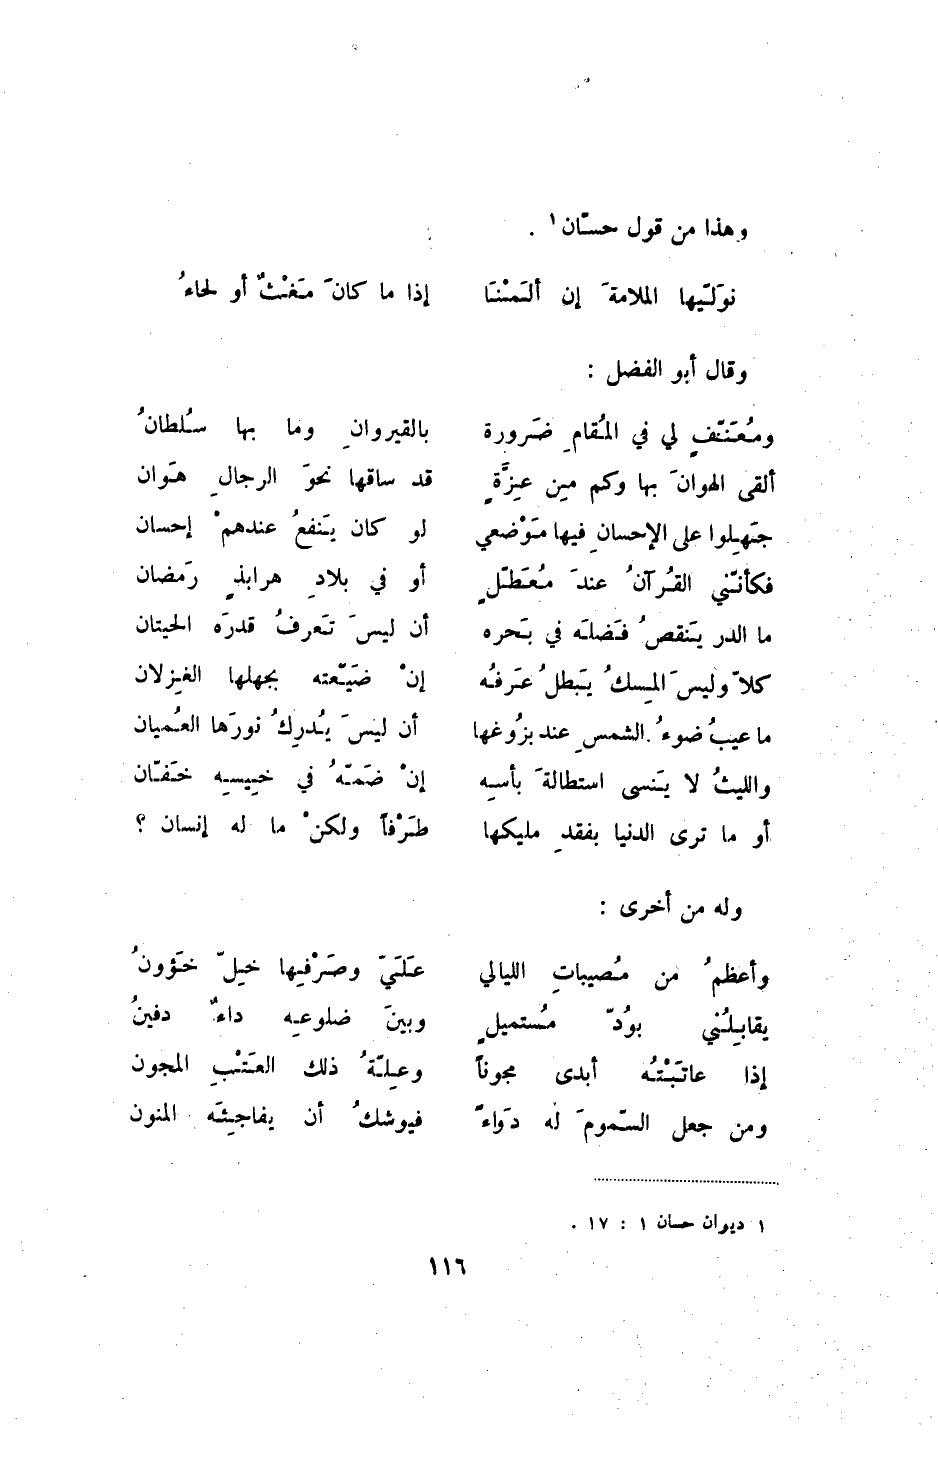 وهذا من قول حسّان١ .
نوَلّيها الملامةَ إن ألَمْنَا إذا ما كانَ مَغْثٌ أو لحاءُ
وقال أبو الفضل :
ومُعَنّفٍ لي في المُقامِ ضَرورة بالقيروانِ وما بها سُلطانُ
ألقى الهوانَ بها وكم مِن عِزَّةٍ قد ساقها نحوَ الرجالِ هَوان
جَهِلوا على الإحسانِ فيها مَوْضعي لو كان يَنفعُ عندهمْ إحسان
فكأنّني القُرآنُ عندَ مُعَطّلٍ أو في بلادِ هرابذٍ رَمضان
ما الدر يَنقصُ فَضلَه في بَحره أن ليسَ تَعرفُ قدرَه الحيتان
كلاّ وليسَ المِسكُ يَبطلُ عَرفُه إنْ ضَيّعته بجهلها الغِزلان
ما عيبُ ضوءُ الشمسِ عند بزُوغها أن ليسَ يُدرِكُ نورَها العُميان
والليثُ لا يَنسى استطالةَ بأسِه إنْ ضَمّهُ في خِيسِه خَفّان
أو ما ترى الدنيا بفقدِ مليكها طَرْفاً ولكنْ ما له إنسان ؟
وله من أخرى :
وأعظمُ من مُصيباتِ الليالي عَلَيّ وصَرْفِها خِلّ خَؤونُ
يقابِلُني بوُدّ مُستميلٍ وبينَ ضلوعِه داءٌ دفينُ
إذا عاتَبْتُه أبدى مجوناً وعِلّةُ ذلك العَتْبِ المجون
ومن جعل السّمومَ له دَواءً فيوشكُ أن يفاجِئَه المنون
١ ديوان حسان ١ : ١٧ .
١١٦